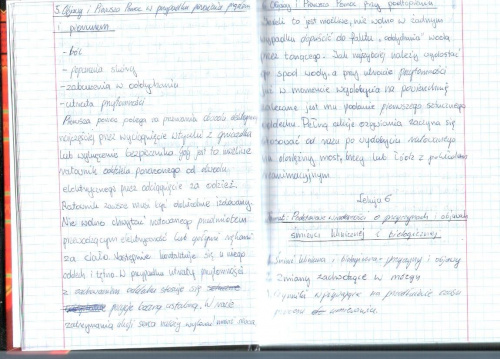 5. Objawy i Pierwsza Pomoc w przypadku porażenia prądem
i piorunem
- ból
- poparzenia skóry
- zaburzenia w oddychaniu
- utrata przytomności
Pierwsza pomoc polega na przerwaniu obwodu elektrycznego
najczęściej przez wyciągnięcie wtyczki z gniazdka
lub wyłączenie bezpiecznika. Gdy jest to możliwe
ratownik oddziela porażonego od obwodu
elektrycznego przez odciągnięcie za odzież.
Ratownik zawsze musi być dokładnie izolowany.
Nie wolno chwytać ratowanego przedmiotem
przewodzącym elektryczność lub gołymi rękami
za ciało. Następnie kontroluje się u niego
oddech i tętno. W przypadku utraty przytomności
z zachowaniem oddechu stosuje się
pozycję boczną ustaloną. W razie
zatrzymania akcji serca należy wykonać masaż serca
Objawy i Pierwsza Pomoc przy podtopieniu
Jeżeli to jest możliwe, nie wolno w żadnym
wypadku dopuścić do faktu "oddychania" wodą
przez tonącego. Jak najszybciej należy wydostać
go spod wody, a przy utracie przytomności
już w momencie wydobycia na powierzchnię
zalecane jest mu podanie pierwszego sztucznego
oddechu. Pełną akcję ożywiania zaczyna się
stosować od razu po wydobyciu ratowanego
na
Lekcja 6
Temat: Podstawowe wiadomości o przyczynach i objawach
śmierci klinicznej i biologicznej
Śmierć kliniczna i biologiczna: przyczyny i objawy
Zmiany zachodzące w mózgu
Czynniki wpływające na przedłużenie czasu
umierania.